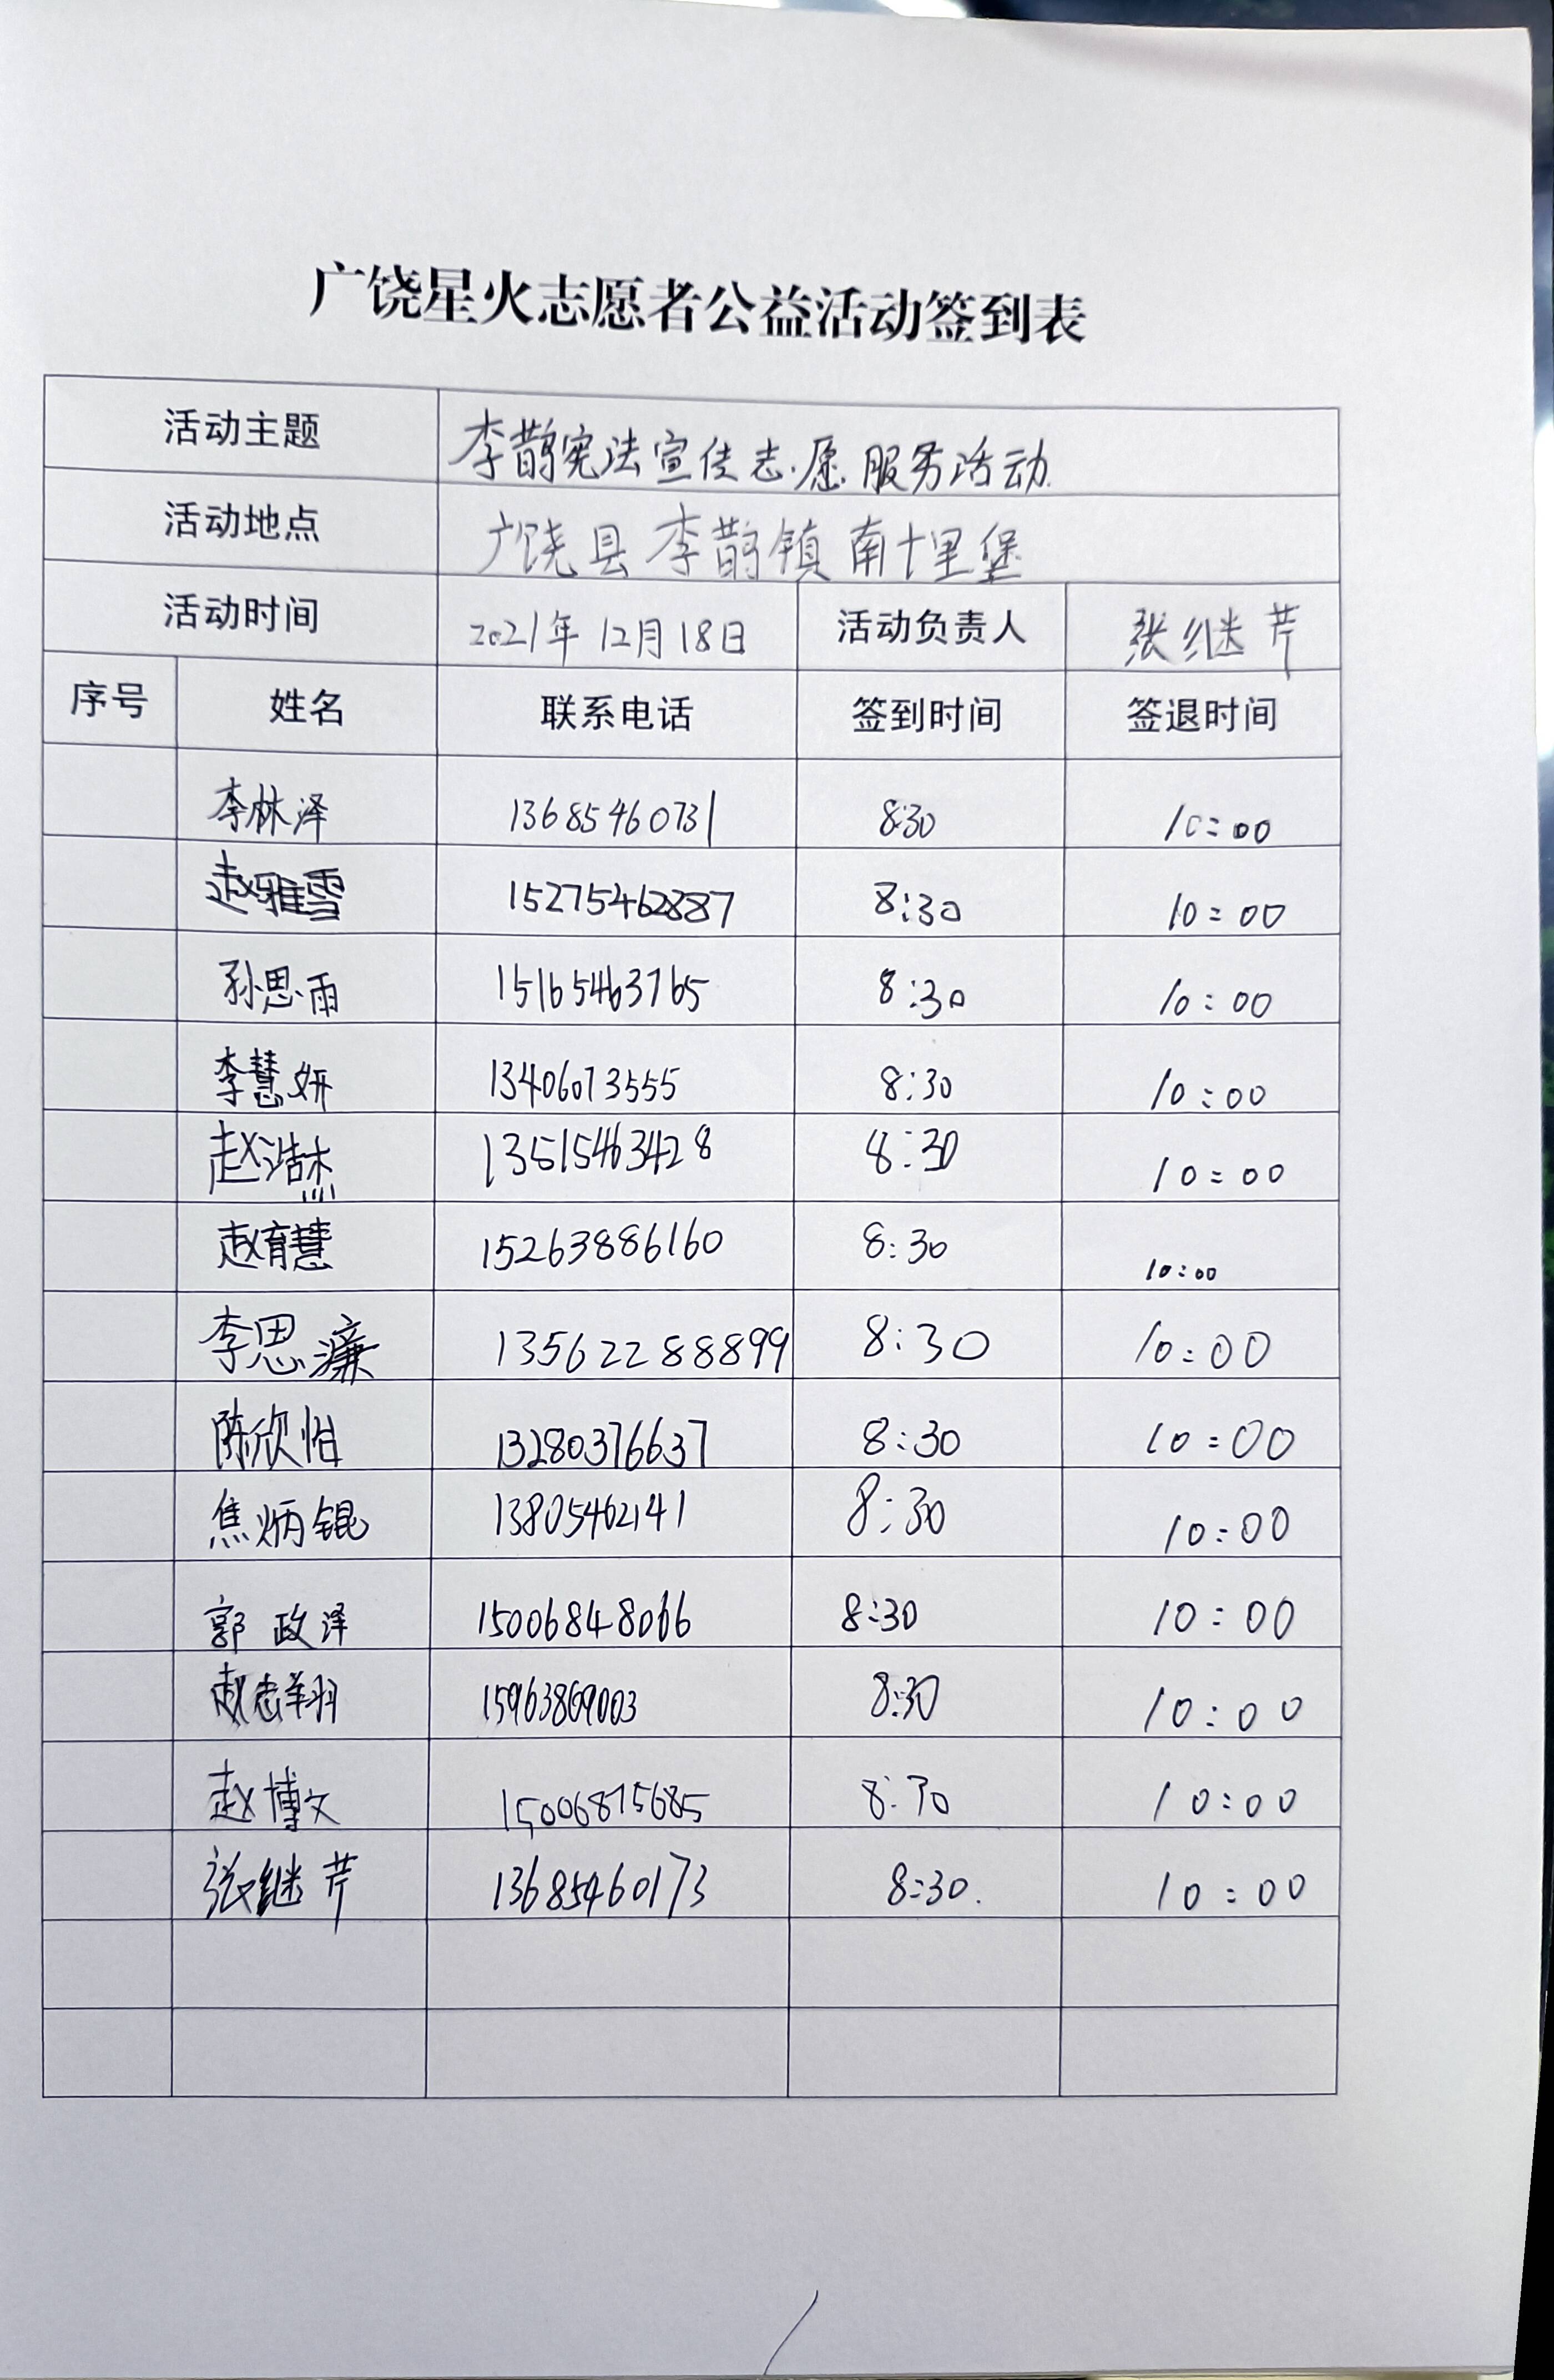 广饶星火志愿者公益活动签到表
活动主题 李鹊宪法宣传志愿服务活动
活动地点 广饶县李鹊镇南十里堡
活动时间 2021年12月18日 活动负责人 张继芹
序号 姓名 联系电话 签到时间 签退时间
李林泽 13685460731 8:30 10:00
赵雅雪 15275462887 8:30 10:00
孙思雨 15165463765 8:30 10:00
李慧妍 13406073555 8:30 10:00
赵浩杰 13515463428 8:30 10:00
赵育慧 15263886160 8:30 10:00
李思濂 13562288899 8:30 10:00
陈欣怡 13280376637 8:30 10:00
焦炳锟 13805462141 8:30 10:00
郭政泽 15006848066 8:30 10:00
赵志翔 15963869003 8:30 10:00
赵博文 15006875685 8:30 10:00
张继芹 13685460173 8:30. 10:00